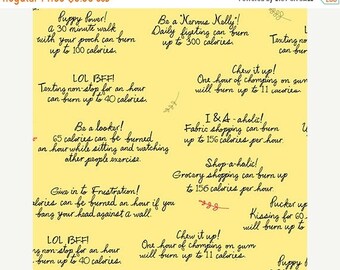 Puppy Power!
A 30 minute walk
with your pooch can burn
up to 100 calories.
Be a Nervous Nelly!
Daily fidgeting can burn
up to 300 calories.
Texting non
can burn up
LOL BFF!
Texting non-stop for an hour
can burn up to 40 calories.
Chew it up!
One hour of chomping on gum
will burn up to 11 calories.
Be a looker!
65 calories can be burned
an hour while sitting and watching
other people exercise.
I & A - aholic!
Fabric shopping can burn
up to 156 calories per hour.
Shop-a-holic!
Grocery shopping can burn
up to 156 calories per hour.
Give in to Frustration!
calories can be burned an hour if you
bang your head against a wall.
Pucker up
Kissing for 60
will burn up to
LOL BFF!
Texting non-stop for an hour
can burn up to 40 calories.
Chew it up!
One hour of chomping on gum
will burn up to 11 calories.